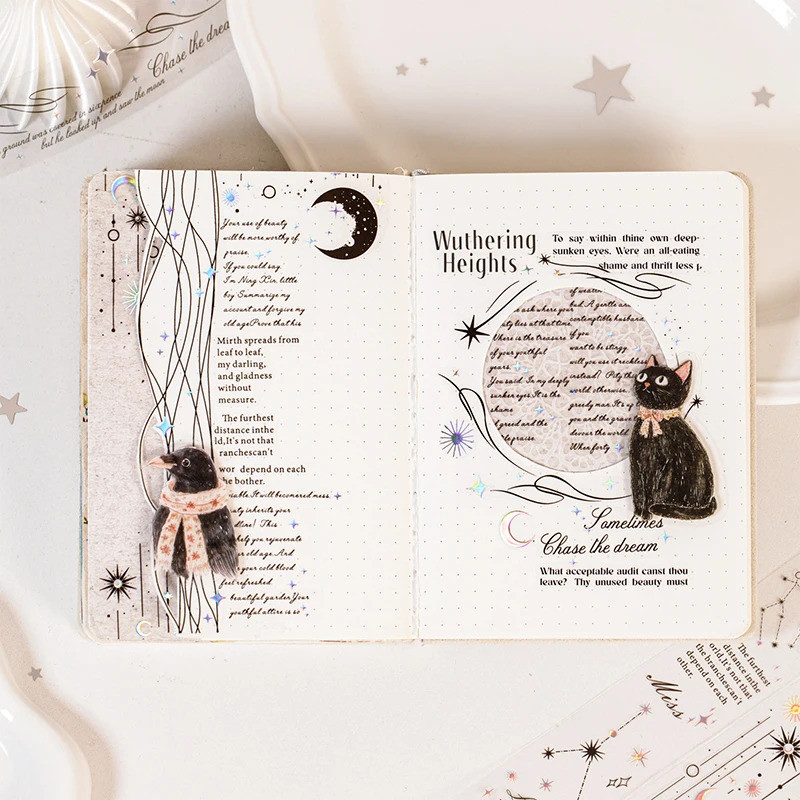 Chase the drea
ground was covered in sixpence
but he looked up and saw the moon
Your use of beauty
will be more worthy of
praise.
If you could say
I'm Ning Xin, little
boy Summarize my
account and forgive my
old age Prove that his
Mirth spreads from
leaf to leaf,
my darling,
and gladness
without
measure.
The furthest
distance inthe
ld,It's not that
ranchescan't
wor depend on each
he bother.
iable.It will becomered mess.
auty inherits your
dline! This
help you rejuvenate
r old age. And
your cold blood
feel refreshed
beautiful garden.Your
youthful attire is so
Wuthering
Heights
To say within thine own deep-
sunken eyes. Were an all-eating
shame and thrift less p
of wealth
bud. A gentle and
contemptible husband.
if you
want to be stingy,
will you use it reckless
instead? Pity the
world, otherwise
greedy man.It's up t
you and the grave t
devour the world.
When forty
s ask where your
uty lies at that time
Where is the treasure
of your youthful
years.
You said. In my deeply
sunken eyes.It is the
shame
of greed and the
le praise.
Sometimes
Chase the dream
What acceptable audit canst thou
leave? Thy unused beauty must
The furthest
distance inthe
orld,It's not that
the branchescan't
depend on each
other.
Miss